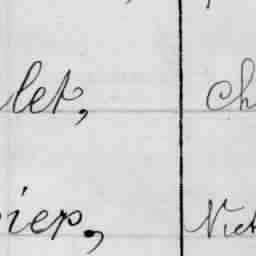 let, Ch
ier, Vict